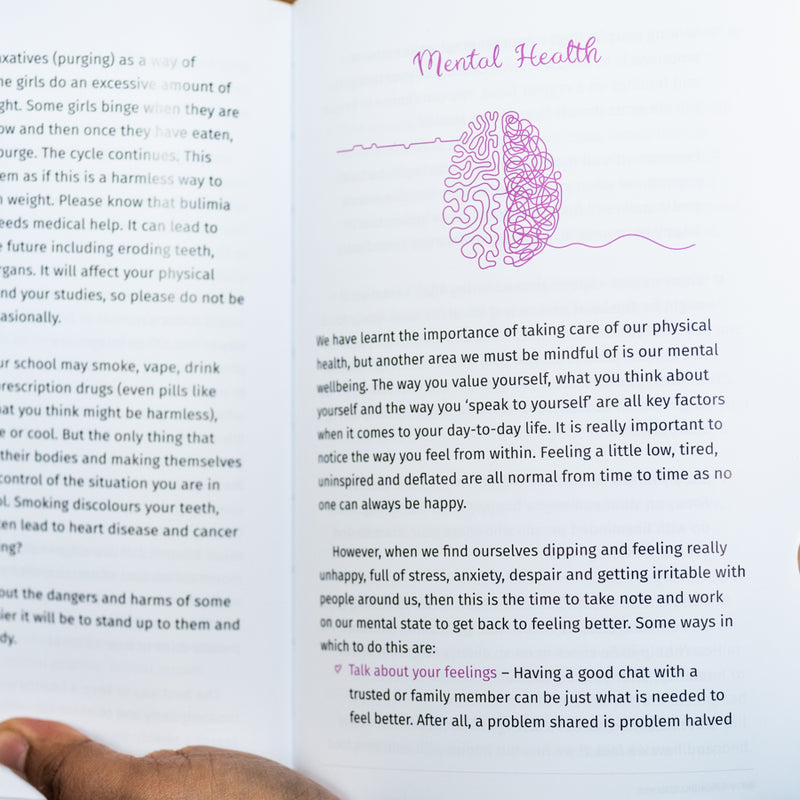 axatives (purging) as a way of
ne girls do an excessive amount of
ght. Some girls binge when they are
ow and then once they have eaten,
purge. The cycle continues. This
em as if this is a harmless way to
n weight. Please know that bulimia
eeds medical help. It can lead to
e future including eroding teeth,
rgans. It will affect your physical
nd your studies, so please do not be
asionally.
ur school may smoke, vape, drink
rescription drugs (even pills like
at you think might be harmless),
e or cool. But the only thing that
their bodies and making themselves
control of the situation you are in
ol. Smoking discolours your teeth,
en lead to heart disease and cancer
ng?
out the dangers and harms of some
ier it will be to stand up to them and
dy.
Mental Health
We have learnt the importance of taking care of our physical
health, but another area we must be mindful of is our mental
wellbeing. The way you value yourself, what you think about
yourself and the way you ‘speak to yourself’ are all key factors
when it comes to your day-to-day life. It is really important to
notice the way you feel from within. Feeling a little low, tired,
uninspired and deflated are all normal from time to time as no
one can always be happy.
However, when we find ourselves dipping and feeling really
unhappy, full of stress, anxiety, despair and getting irritable with
people around us, then this is the time to take note and work
on our mental state to get back to feeling better. Some ways in
which to do this are:
♡ Talk about your feelings – Having a good chat with a
trusted or family member can be just what is needed to
feel better. After all, a problem shared is problem halved